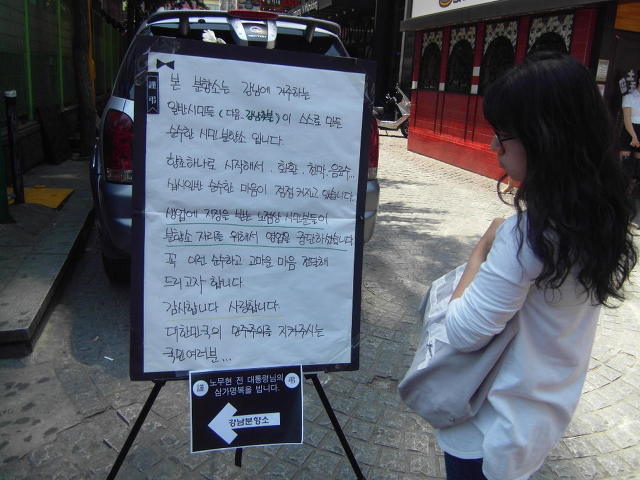 謹弔
본 분향소는 강남에 거주하는
일반시민들 (다음.강남촛불)이 스스로 만든
순수한 시민 분향소 입니다.
향초하나로 시작해서. 헌화. 천막. 음료수..
십시일반 순수한 마음이 점점 커지고 있습니다.
생업에 지장을 받는 노점상 시민분들이
분향소 자리를 위해서 영업을 중단하셨습니다
꼭 이런 순수하고 고마운 마음 전달해
드리고자 합니다.
감사합니다 사랑합니다.
대한민국의 민주주의를 지켜주시는
국민여러분...
謹 노무현 전 대통령님의 弔
삼가명복을 빕니다.
강남분향소